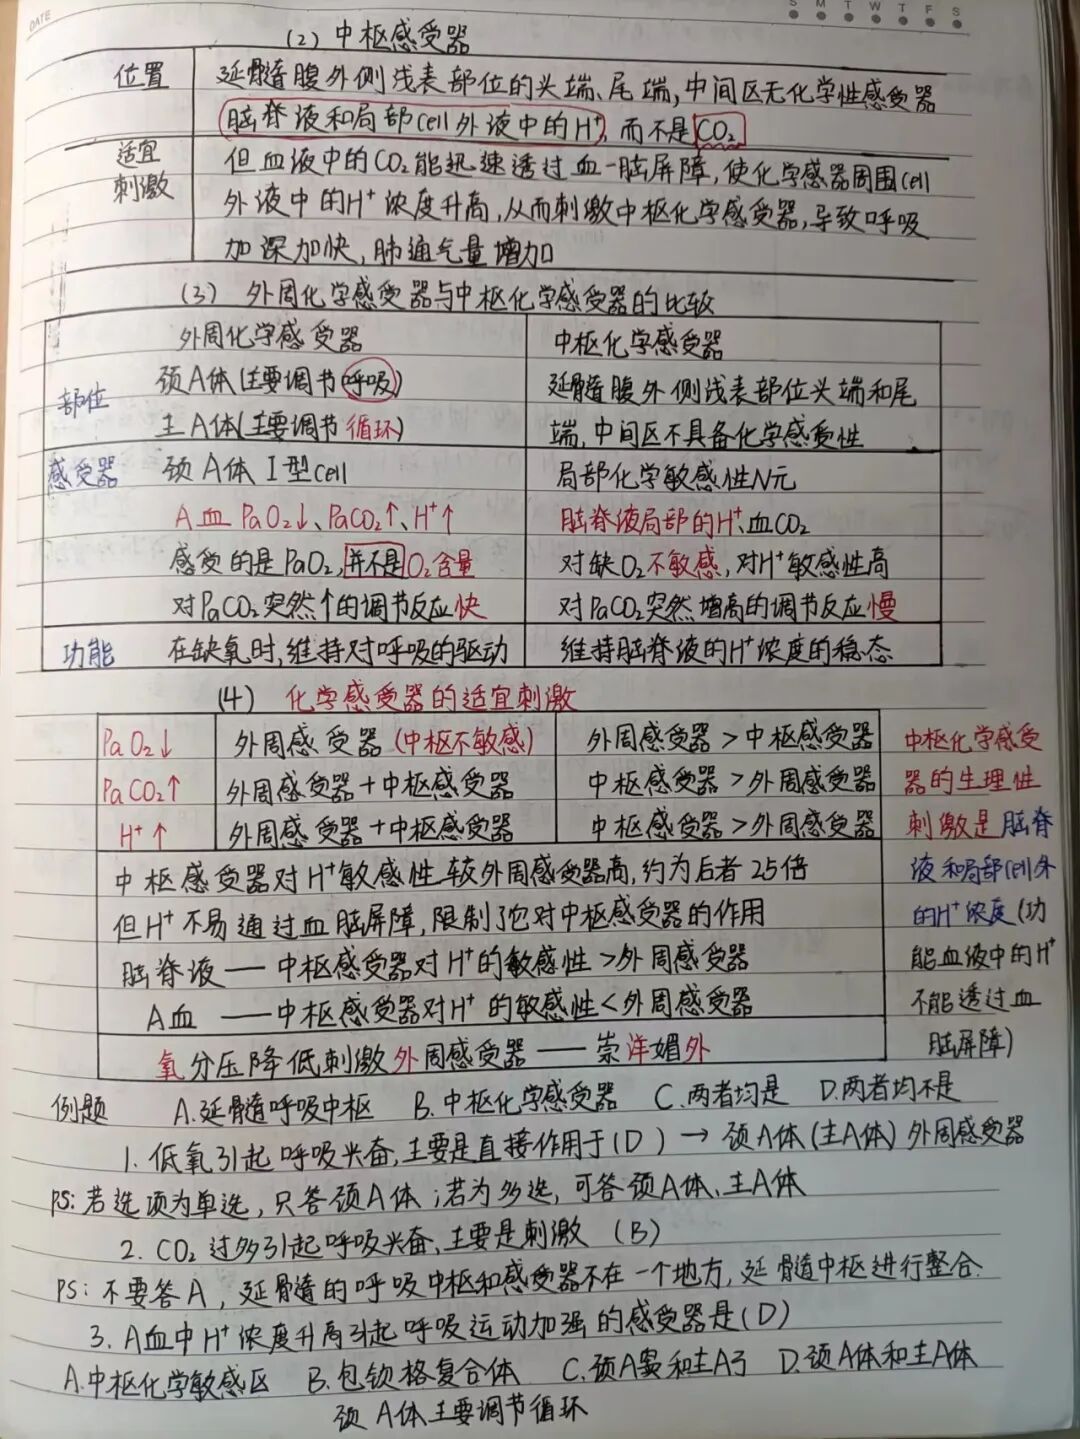 DATE
S M T W T F S
(2) 中枢感受器
位置 延髓腹外侧浅表部位的头端、尾端,中间区无化学性感受器
脑脊液和局部cell外液中的H⁺,而不是CO₂
适宜 但血液中的CO₂能迅速透过血-脑屏障,使化学感器周围cell
刺激 外液中的H⁺浓度升高,从而刺激中枢化学感受器,导致呼吸
加深加快,肺通气量增加
(3) 外周化学感受器与中枢化学感受器的比较
外周化学感受器 中枢化学感受器
部位 颈A体(主要调节呼吸) 延髓腹外侧浅表部位头端和尾
主A体(主要调节循环) 端,中间区不具备化学感受性
感受器 颈A体I型cell 局部化学敏感性N元
A血PaO₂↓、PaCO₂↑、H⁺↑ 脑脊液局部的H⁺、血CO₂
感受的是PaO₂,并不是O₂含量 对缺O₂不敏感,对H⁺敏感性高
对PaCO₂突然↑的调节反应快 对PaCO₂突然增高的调节反应慢
功能 在缺氧时,维持对呼吸的驱动 维持脑脊液的H⁺浓度的稳态
(4) 化学感受器的适宜刺激
PaO₂↓ 外周感受器(中枢不敏感) 外周感受器>中枢感受器
PaCO₂↑ 外周感受器+中枢感受器 中枢感受器>外周感受器
H⁺↑ 外周感受器+中枢感受器 中枢感受器>外周感受器
中枢感受器对H⁺敏感性较外周感受器高,约为后者25倍
但H⁺不易通过血脑屏障,限制了它对中枢感受器的作用
脑脊液——中枢感受器对H⁺的敏感性>外周感受器
A血——中枢感受器对H⁺的敏感性<外周感受器
氧分压降低刺激外周感受器——崇洋媚外
中枢化学感受
器的生理性
刺激是脑脊
液和局部cell外
的H⁺浓度(功
能血液中的H⁺
不能透过血
脑屏障)
例题 A.延髓呼吸中枢 B.中枢化学感受器 C.两者均是 D.两者均不是
1. 低氧引起呼吸兴奋,主要是直接作用于(D)→颈A体(主A体)外周感受器
PS:若选项为单选,只答颈A体;若为多选,可答颈A体、主A体
2. CO₂过多引起呼吸兴奋,主要是刺激(B)
PS:不要答A,延髓的呼吸中枢和感受器不在一个地方,延髓中枢进行整合.
3. A血中H⁺浓度升高引起呼吸运动加强的感受器是(D)
A.中枢化学敏感区 B.包钦格复合体 C.颈A窦和主A弓 D.颈A体和主A体
颈A体主要调节循环